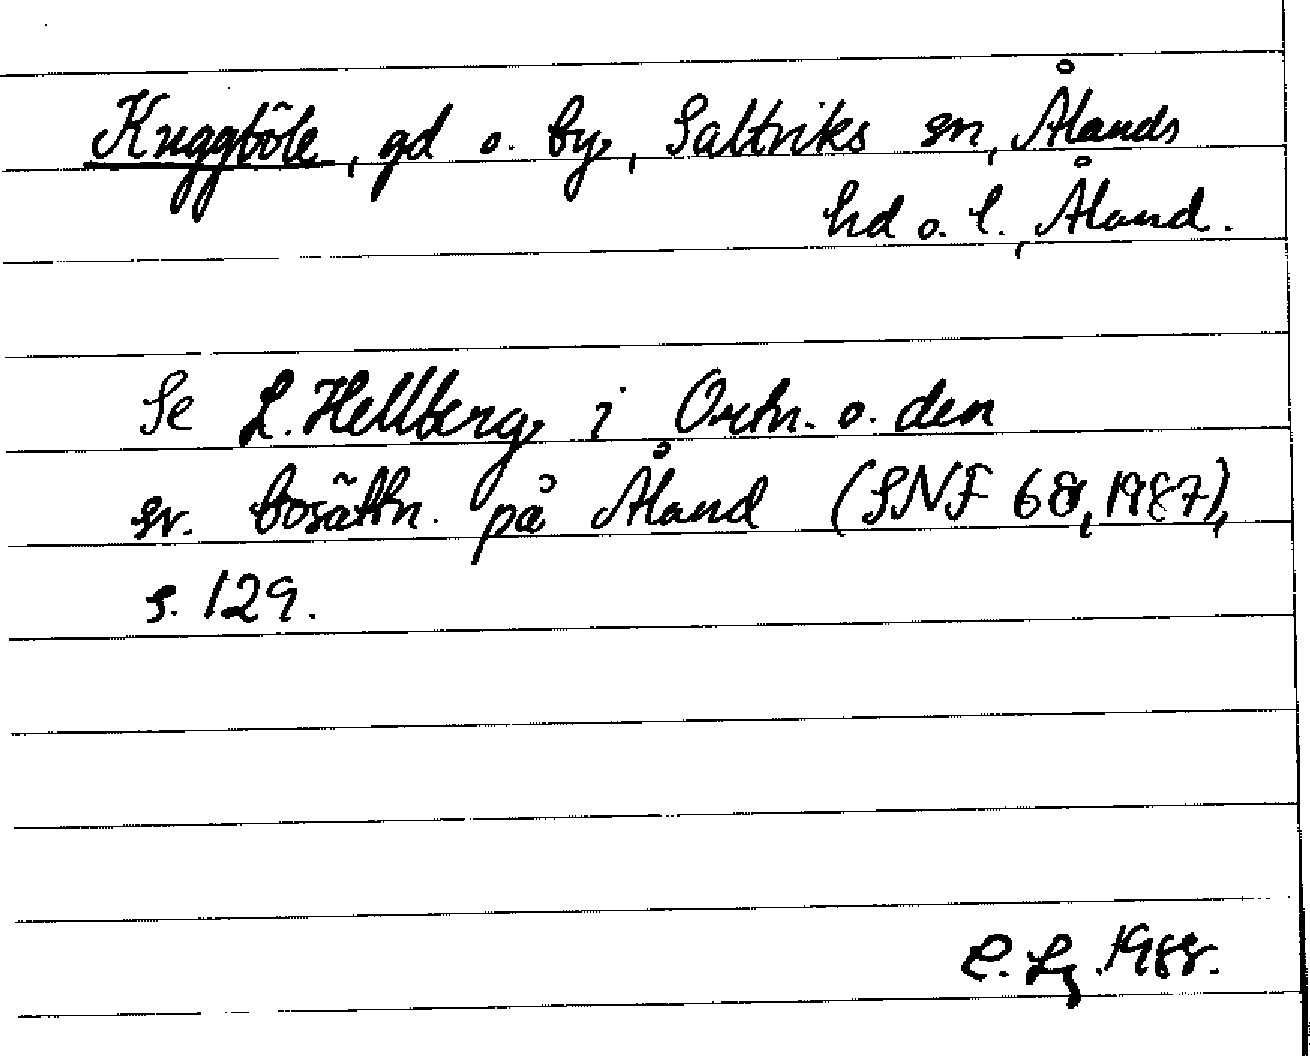 Kuggböle, gd o. by, Saltviks sn, Ålands
hd o. l., Åland.
Se L. Hellberg i Ortn. o. den
sv. bosättn. på Åland (SNF 68, 1987),
s. 129.
E. Lg 1988.